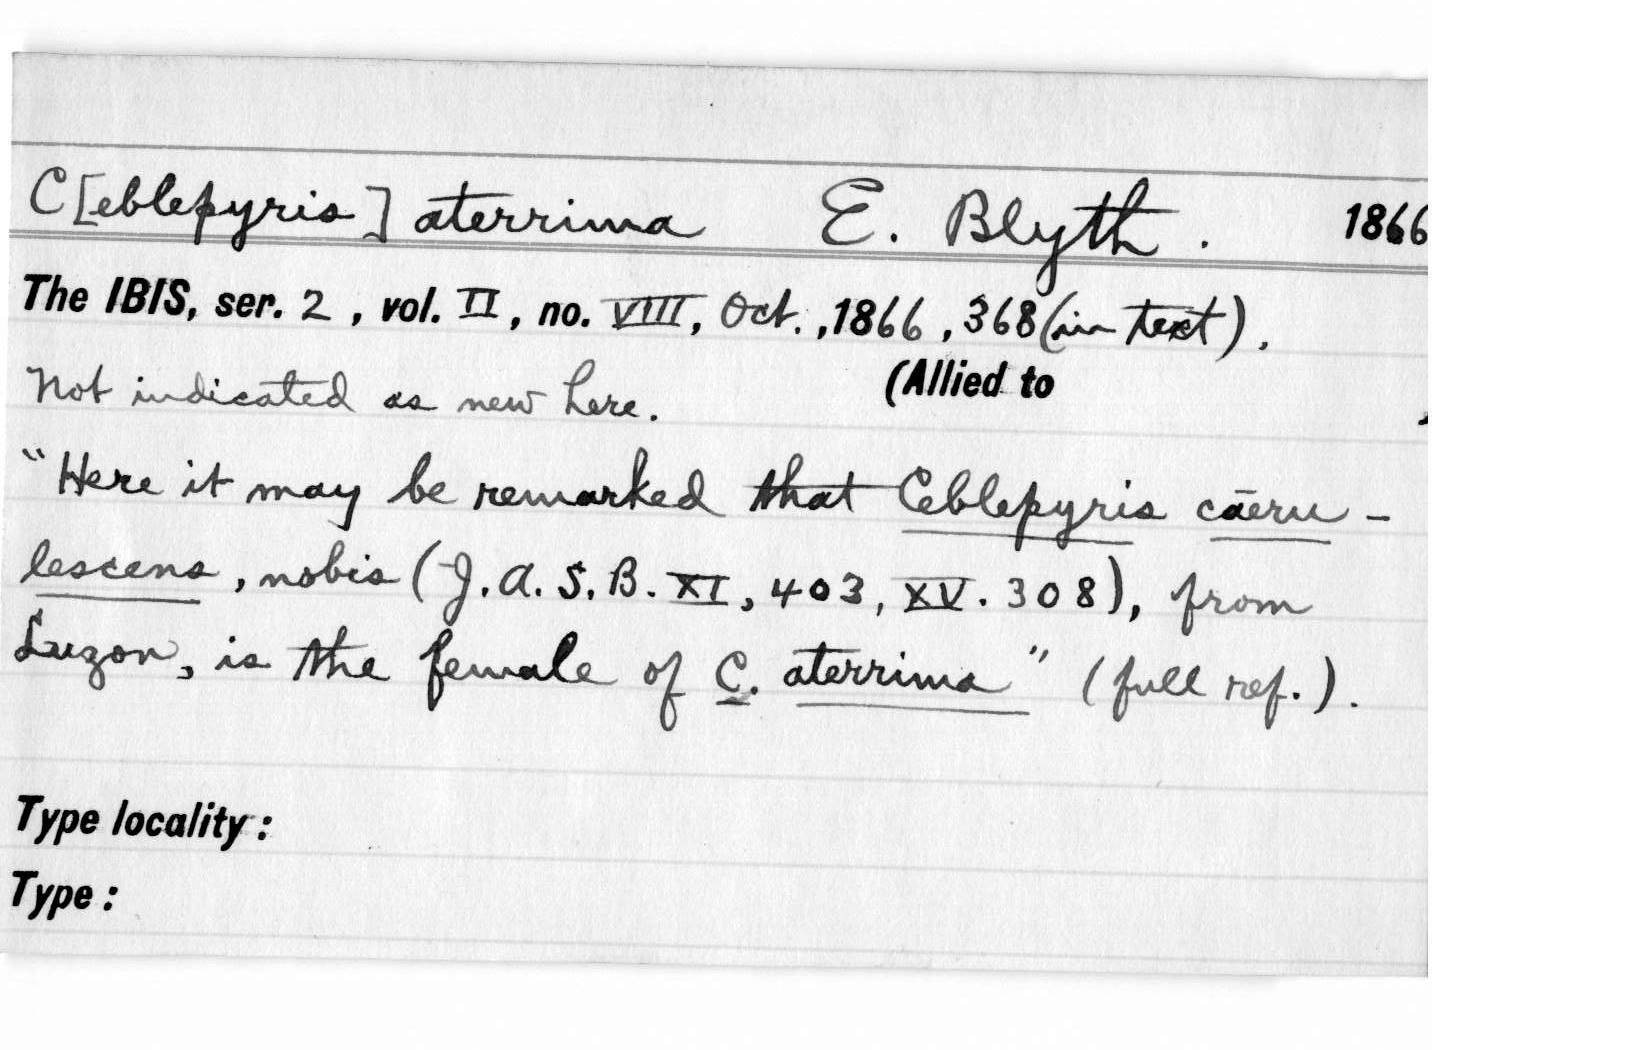 C[eblepyris] aterrima E. Blyth. 1866
The IBIS, ser. 2, vol. II, no. VIII, Oct., 1866, 368 (in text).
Not indicated as new here. (Allied to
"Here it may be remarked that Ceblepyris cāeru-
lescens, nobis (J.A.S.B. XI, 403, XV. 308), from
Luzon, is the female of C. aterrima" (full ref.).
Type locality:
Type: